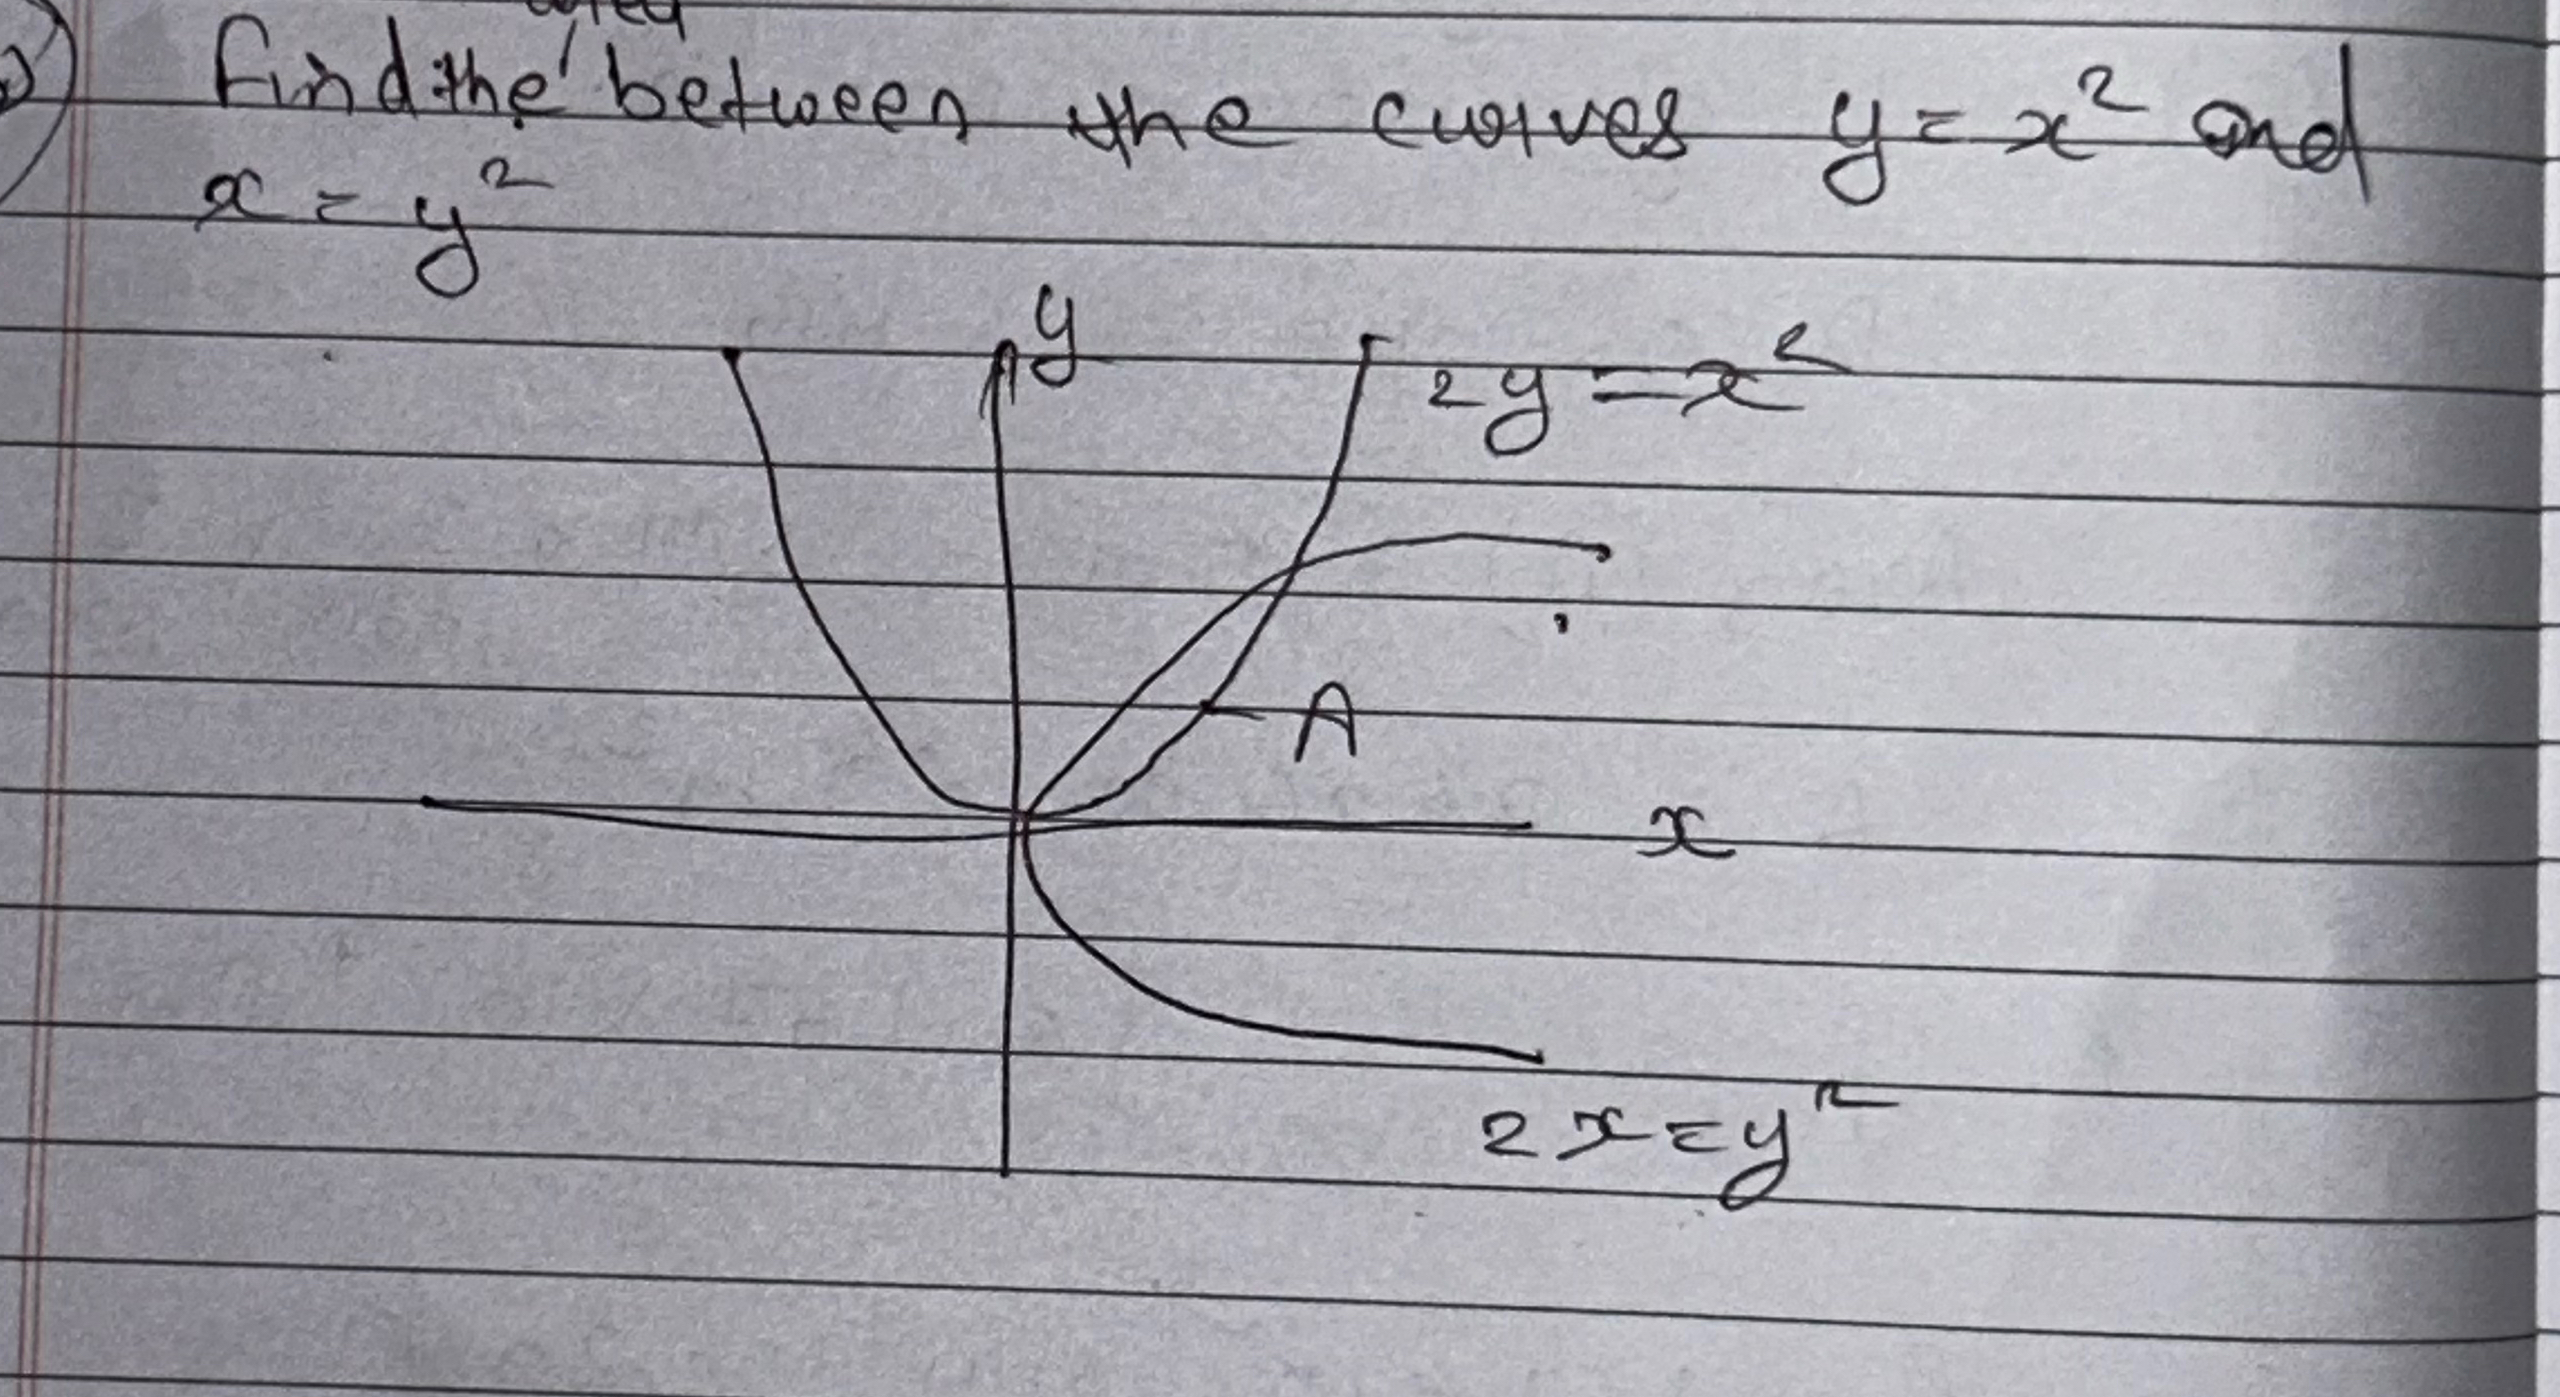 area
Find the between the curves y = x² and
x = y²
y
2y = x²
A
x
2x = y²